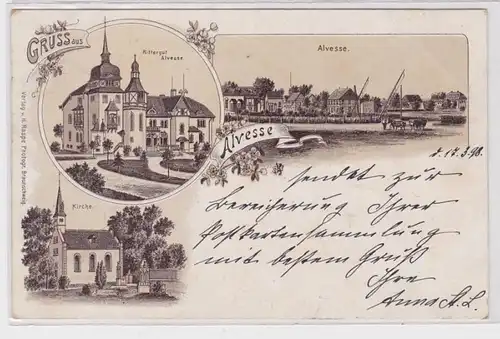 GRUSS aus
Rittergut
Alvesse
Alvesse.
Alvesse
Kirche.
Verlag v. H. Raape Photogr. Braunschweig
d. 17.3.98.
sendet zur
Bereicherung Ihrer
Postkartensammlung
mit bestem Gruß
Ihre
Anna A. L.